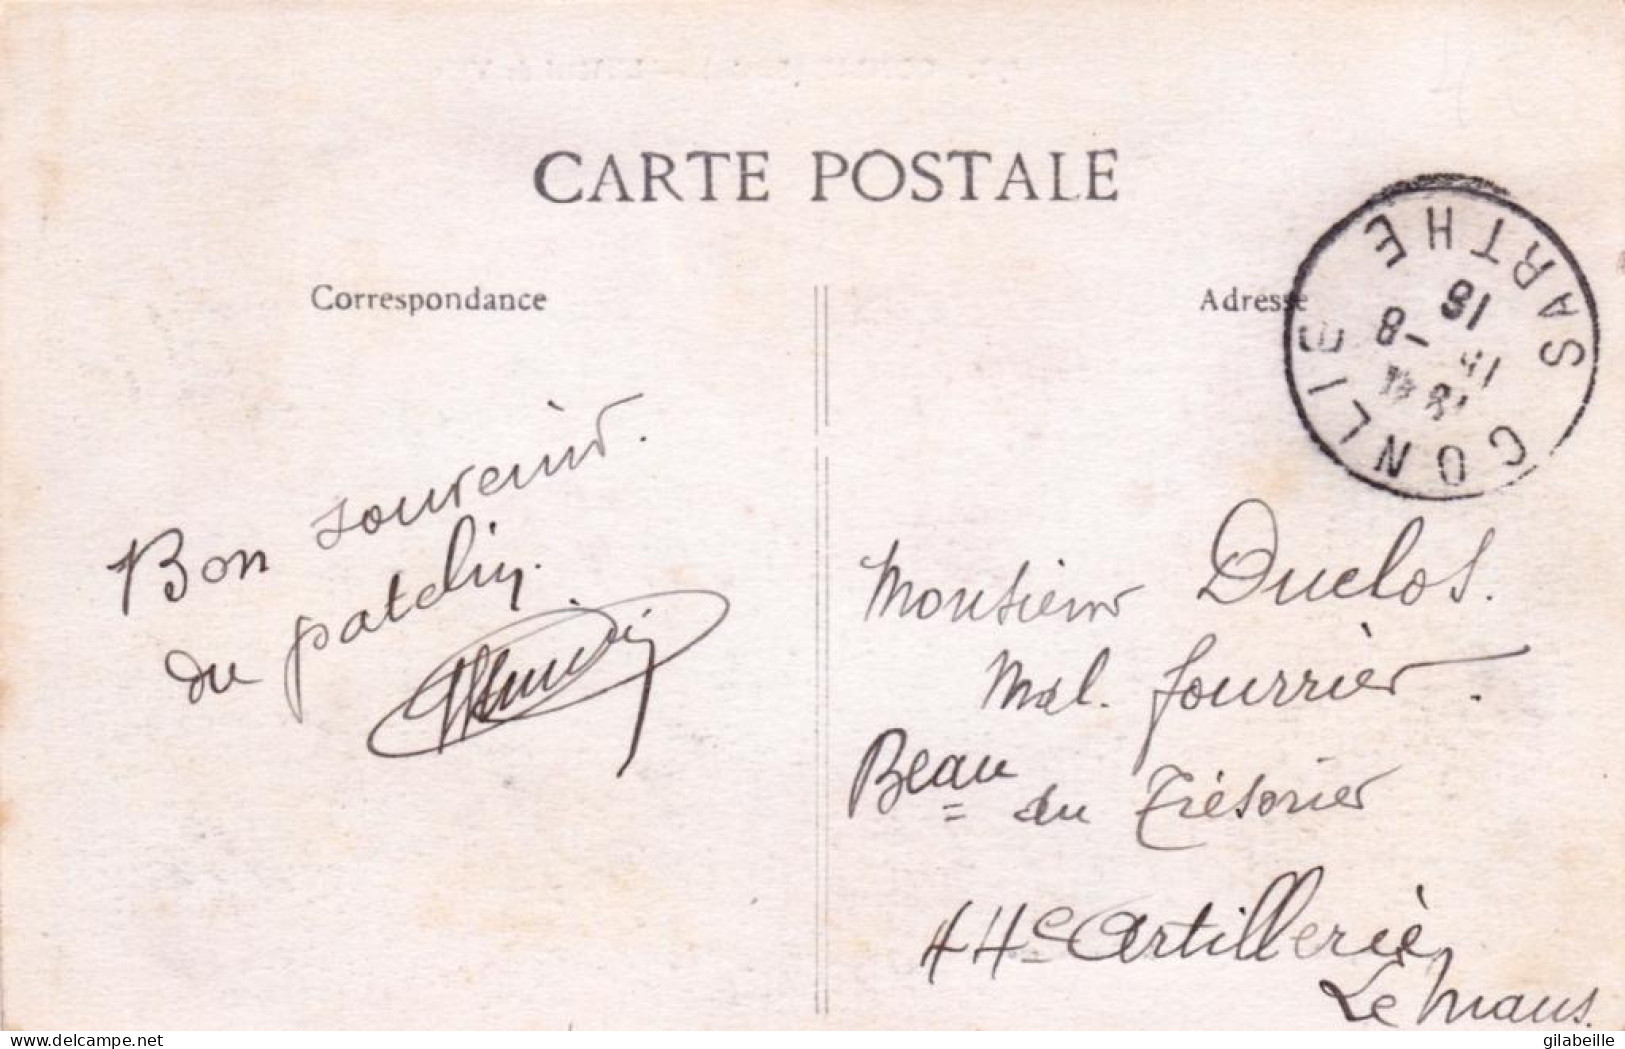 CARTE POSTALE
Correspondance
Adresse
CONLIE SARTHE
18
-8
18
Bon souvenir.
du patelin.
Monsieur Duclos.
Mal. fourrier.
Beau du Trésorier
44e Artillerie
Le Mans.
www.delcampe.net
gilabeille